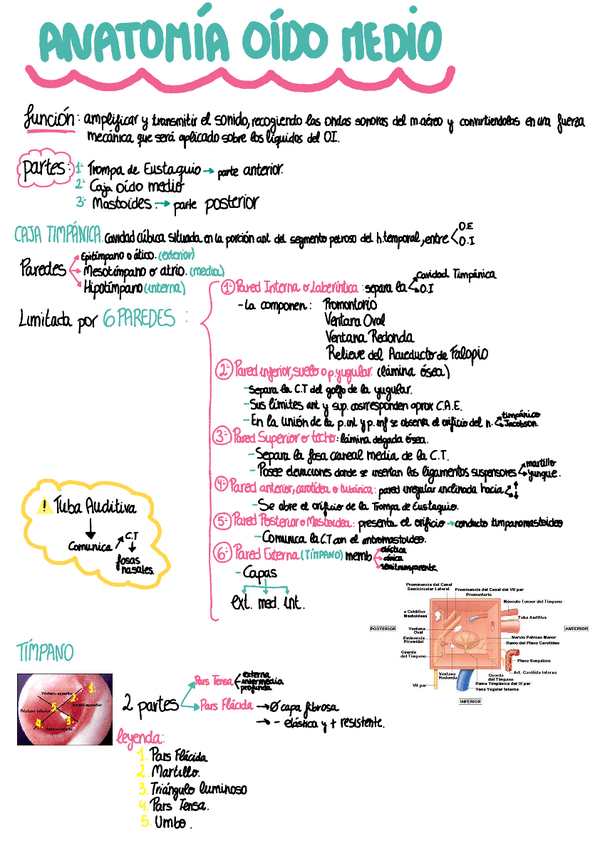 ANATOMÍA OÍDO MEDIO
función: amplificar y transmitir el sonido, recogiendo las ondas sonoras del m.aéreo y convirtiendolas en una fuerza
mecánica, que será aplicado sobre los líquidos del O.I.
partes: 1ª Trompa de Eustaquio → parte anterior.
2ª Caja oído medio
3ª Mastoides → parte posterior
CAJA TIMPÁNICA. Cavidad cúbica situada en la porción ant. del segmento petroso del h.temporal, entre O.E
O.I
Paredes
Epitímpano o ático. (exterior)
Mesotímpano o atrio. (media)
Hipotímpano (interna)
Limitada por 6 PAREDES:
1ª Pared Interna o Laberíntica: separa la Cavidad Timpánica
O.I
- La componen: Promontorio
Ventana Oval
Ventana Redonda
Relieve del Aqueducto de Falopio
2ª Pared inferior, suelo o p yugular. (lámina ósea)
- Separa la C.T del golfo de la yugular.
- Sus límites ant y sup. corresponden aprox C.A.E.
- En la unión de la p.int y p.inf se observa el orificio del n. timpánico
Jacobson.
3ª Pared Superior o techo: lámina delgada ósea.
- Separa la fosa craneal media de la C.T.
- Posee elevaciones donde se insertan los ligamentos suspensores martillo
yunque.
4ª Pared anterior, carotídea o tubárica: pared irregular inclinada hacia
- Se abre el orificio de la Trompa de Eustaquio.
5ª Pared Posterior o Mastoidea: presenta el orificio → conducto timpanomastoideo
- Comunica la CT con el antromastoideo.
6ª Pared Externa (TÍMPANO) memb elástica
cónica
semitransparente.
- Capas
ext. med. int.
! Tuba Auditiva
Comunica
C.T
fosas
nasales.
Prominencia del Canal
Semicircular Lateral
Prominencia del Canal del VII par
Promontorio
Músculo Tensor del Tímpano
Tuba Auditiva
POSTERIOR
ANTERIOR
Ventana
Oval
Eminencia
Piramidal
Cuerda
del Tímpano
Nervio Petroso Menor
Ramo del Plexo Carotídeo
Plexo Simpático
Art. Carótida Interna
Ventana
Redonda
VII par
Cuerda
del Tímpano
Rama Timpánica del IX par
Vena Yugular Interna
INFERIOR
TÍMPANO
1
2
3
4
5
2 partes
Pars Tensa externa
intermedia
profunda.
Pars Flácida → Ø capa fibrosa
→ - elástica y + resistente.
leyenda:
1. Pars Flácida
2. Martillo.
3. Triángulo luminoso
4. Pars Tensa.
5. Umbo.